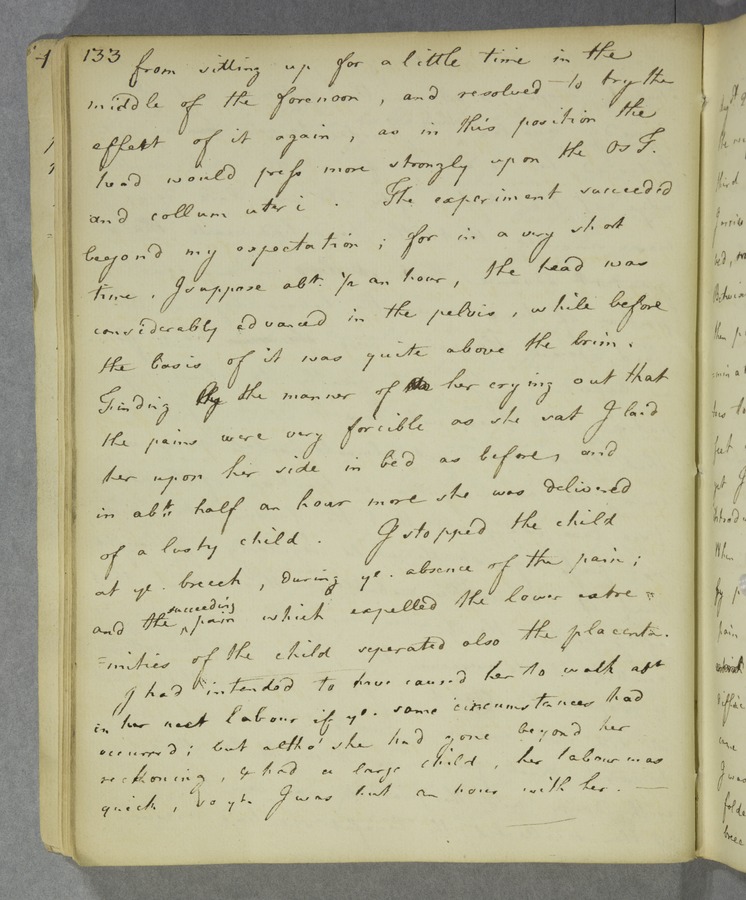 133
from sitting up for a little time in the
middle of the forenoon, and resolved to try the
effect of it again, as in this position the
head would press more strongly upon the Os T.
and collum uteri. The experiment succeeded
beyond my expectation; for in a very short
time, I suppose abt. 1/2 an hour, the head was
considerably advanced in the pelvis, while before
the basis of it was quite above the brim.
Finding by the manner of her crying out that
the pains were very forcible as she sat I laid
her upon her side in bed as before, and
in abt. half an hour more she was delivered
of a lusty child. I stopped the child
at ye. breech, during ye. absence of the pain;
and the succeeding pain which expelled the lower extre=
=mities of the child separated also the placenta.
I had intended to have caused her to walk abt
in her next labour if ye. same circumstances had
occurred; but altho' she had gone beyond her
reckoning, & had a large child, her labour was
quick, so yt. I was but an hour with her. —